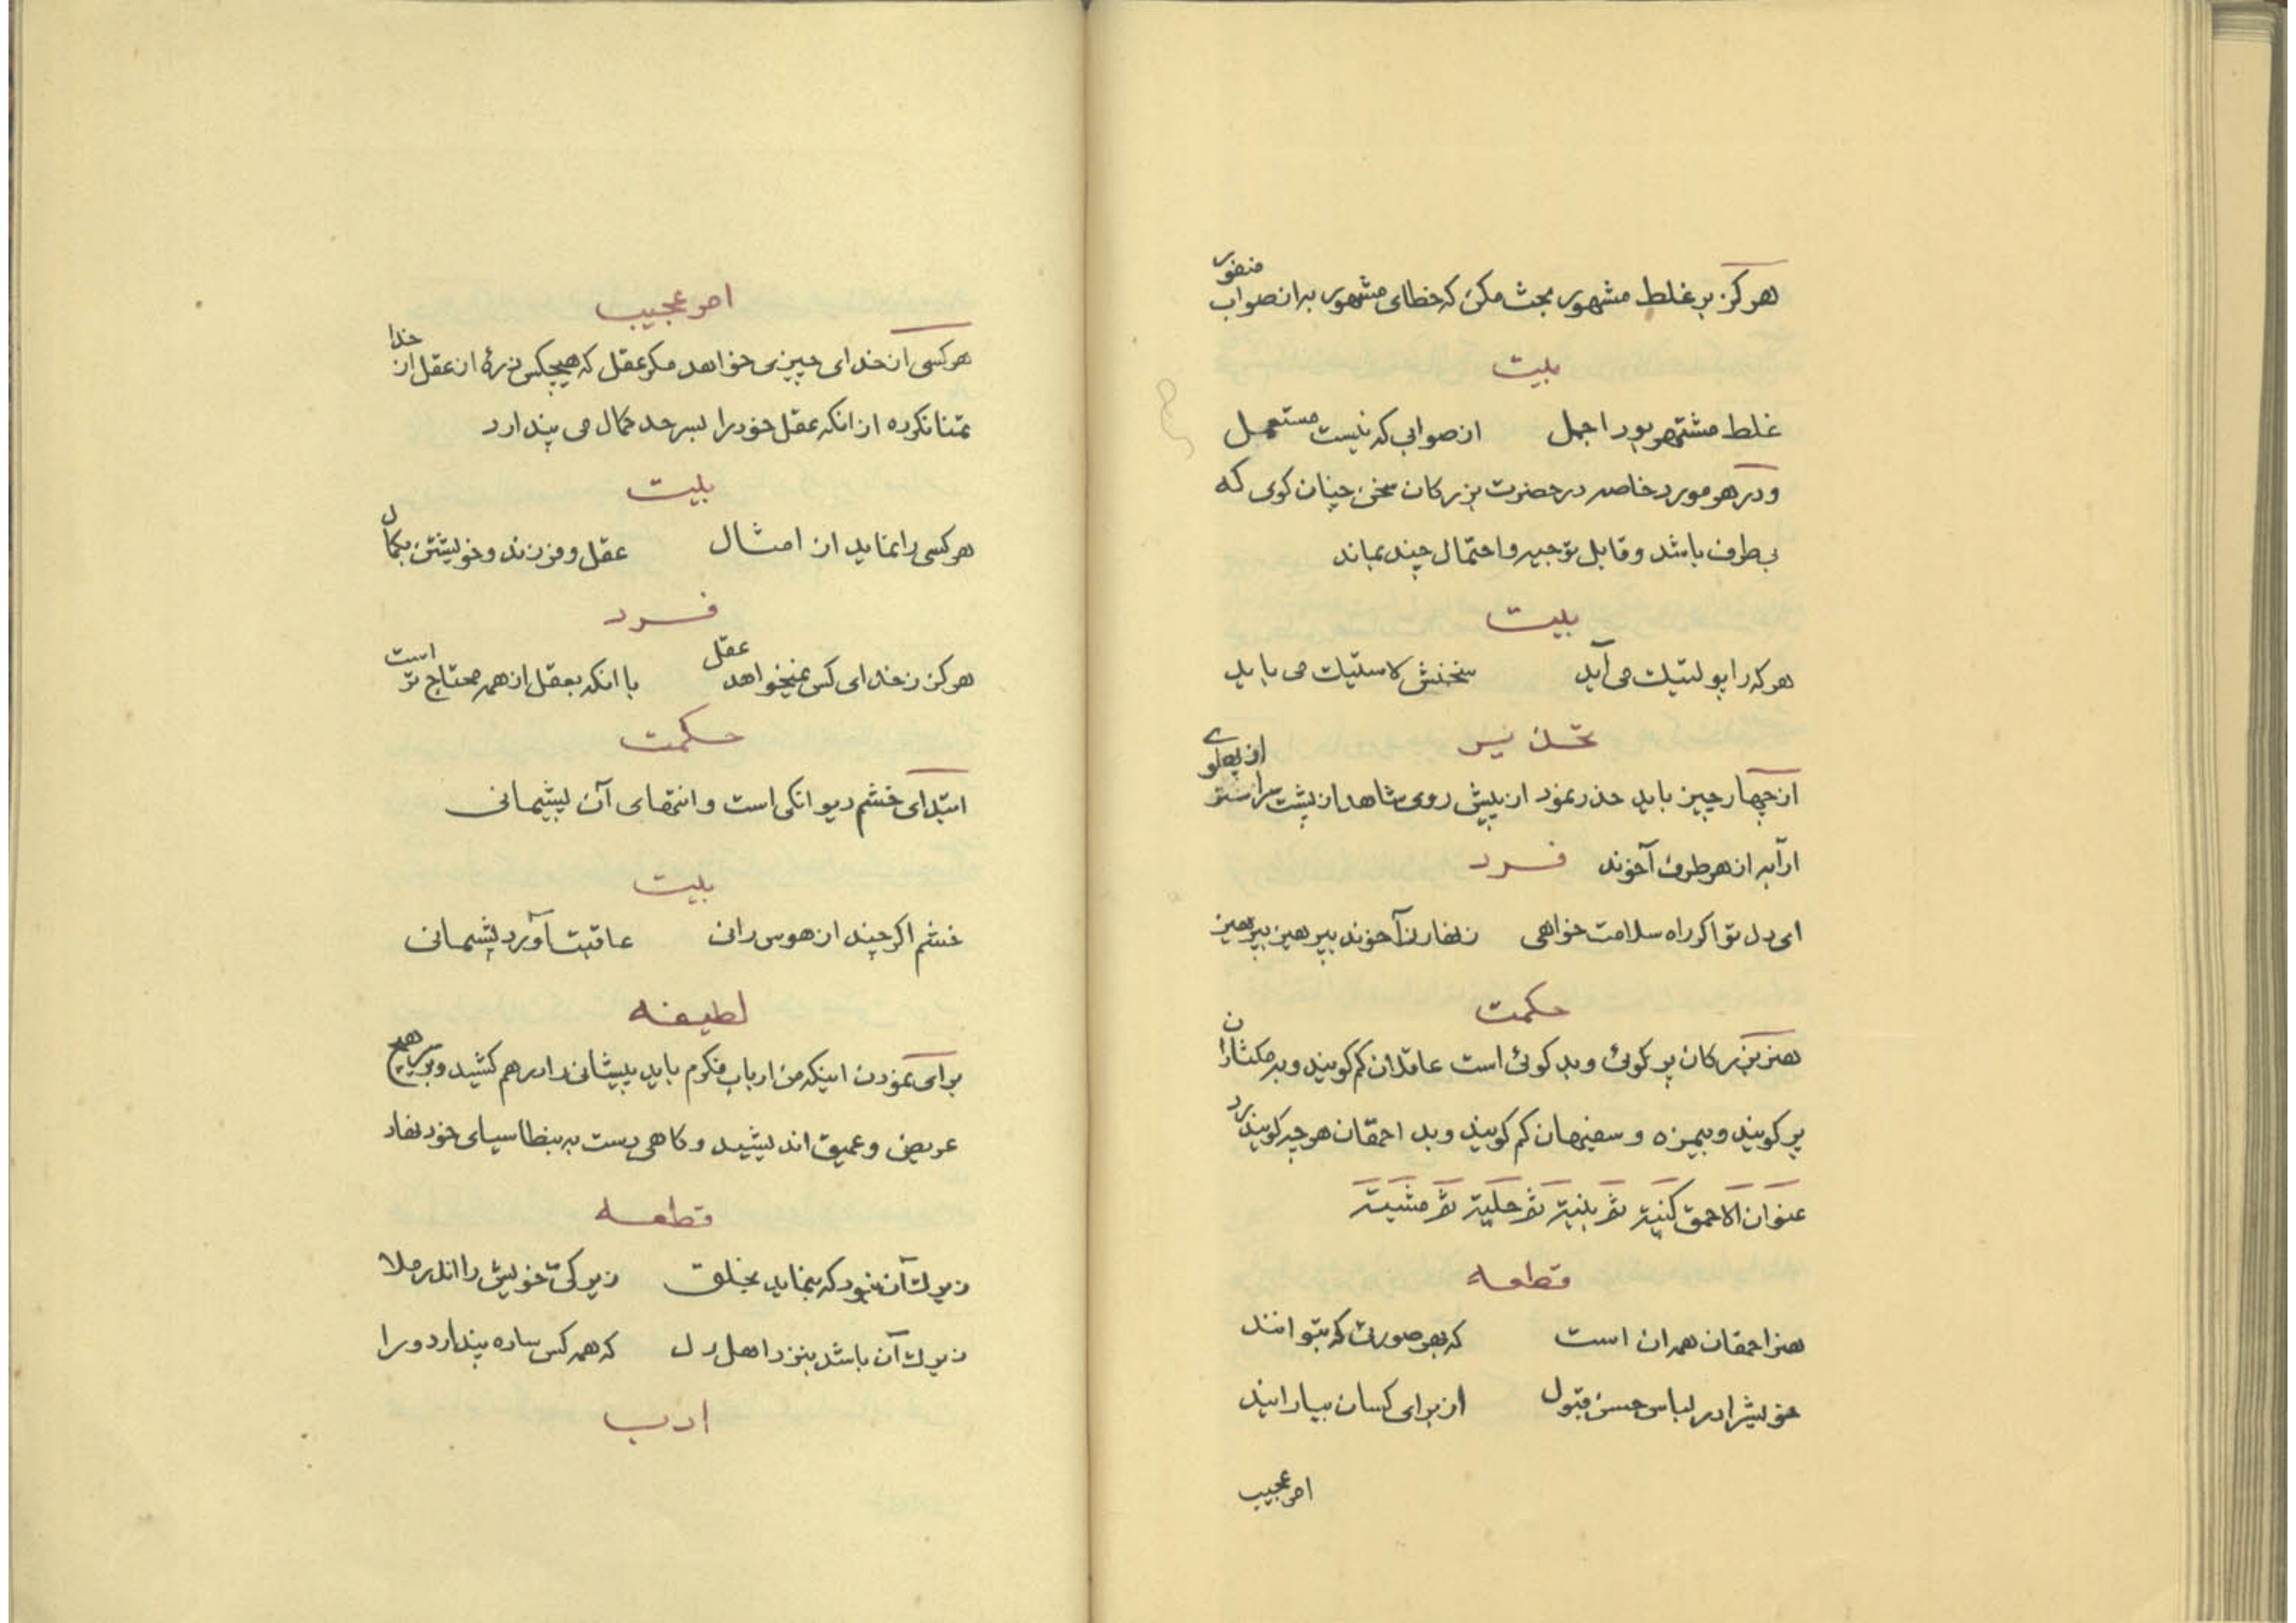 هرگز بر غلط مشهور بحث مکن که خطای مشهور به از صواب منفور
بیت
غلط مشتهر بود اجمل از صوابی که نیست مستعمل
و در هر مورد خاصه در حضرت بزرکان سخن چنان کوی که
بی طرف باشد و قابل توجیه و احتمال چند بماند
بیت
هر که را پولتیک می آید سخنش لاستیک می باید
تحذیر
از چهار چیز باید حذر نمود از پیش روی شاهد از پشت سر استر از پهلوے
ارابه از هر طرف آخوند فرد
ای دل تو اکر راه سلامت خواهی زنهار ز آخوند بپرهیز بپرهیز
حکمت
هنر بزرکان پر کوئی و بد کوئی است عاقلان کم کویند و به مکثاران
پر کویند و بیمزه و سفیهان کم کویند و بد احمقان هر چه کویند رد
عنوان الاحمق کنیته ثم بنیته ثم حلیته ثم مشیته
قطعه
هنر احمقان همه ان است که بهر صورتی که بتوانند
خویش را در لباس حسن قبول از برای کسان بیارایند
امر عجیب
امر عجیب
هر کسی از خدای چیزی خواهد مکر عقل که هیچکس ذرهٔ از عقل از خدا
تمنا نکرده از انکه عقل خود را بسر حد کمال می پندارد
بیت
هر کسی را نماید از امثال عقل و فرزند و خویشتن بکمال
فرد
هرکز ز خدای کس نمیخواهد عقل با انکه بعقل از همه محتاج تر است
حکمت
ابتدای خشم دیوانکی است و انتهای آن پشیمانی
بیت
خشم اکر چند از هوس رانی عاقبت آورد پشیمانی
لطیفه
برای نمودن اینکه من ارباب فکرم باید پیشانی را در هم کشید و بر هیچ
عریض و عمیق اندیشید و کاهی دست به بنطاسیای خود نهاد
قطعه
زیرک آن نبود که بنماید بخلق زیرکی خویش را اندر ملا
زیرک آن باشد بنزد اهل دل که همه کس ساده پندارد ورا
ادب